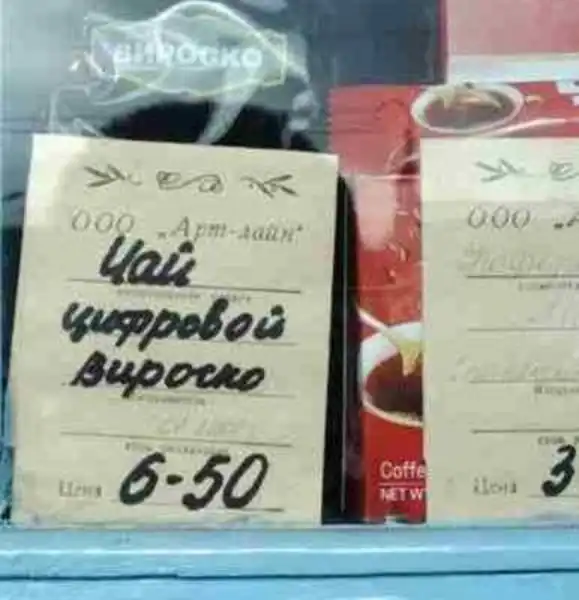 ВИРОСКО
ООО „Арт-лайн"
Чай
цифровой
Вироско
Цена 6-50
ООО
Цена 3
Coffe
NET W